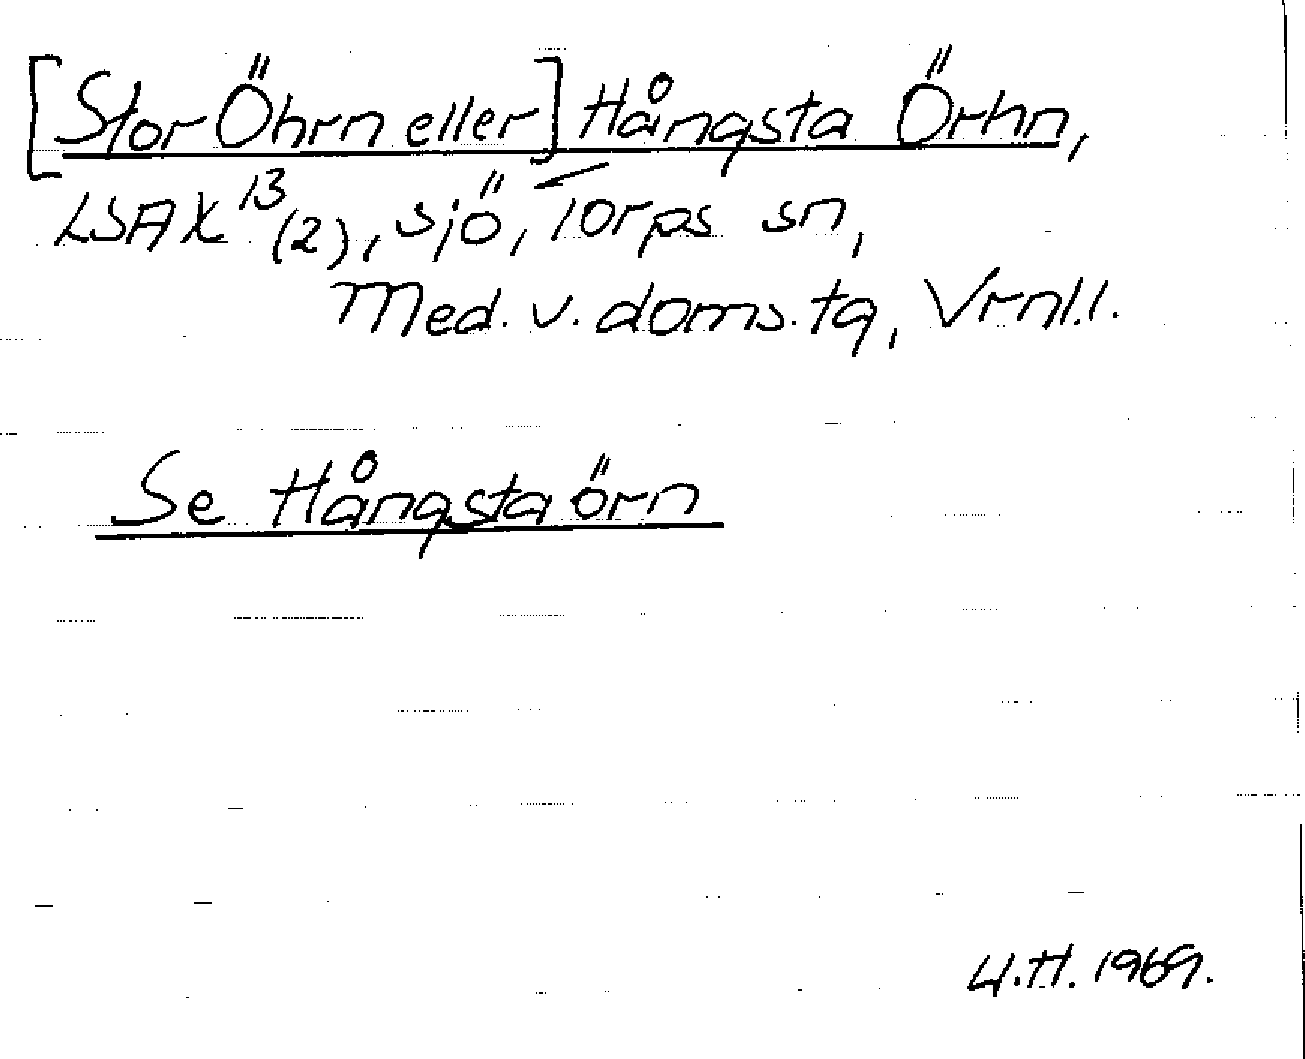 [Stor Öhrn eller] Hångsta Örhn,
LSA X 13 (2), sjö, Torps sn,
Med. v. doms. tg, Vrnl.l.
Se Hångstaörn
U.H. 1969.